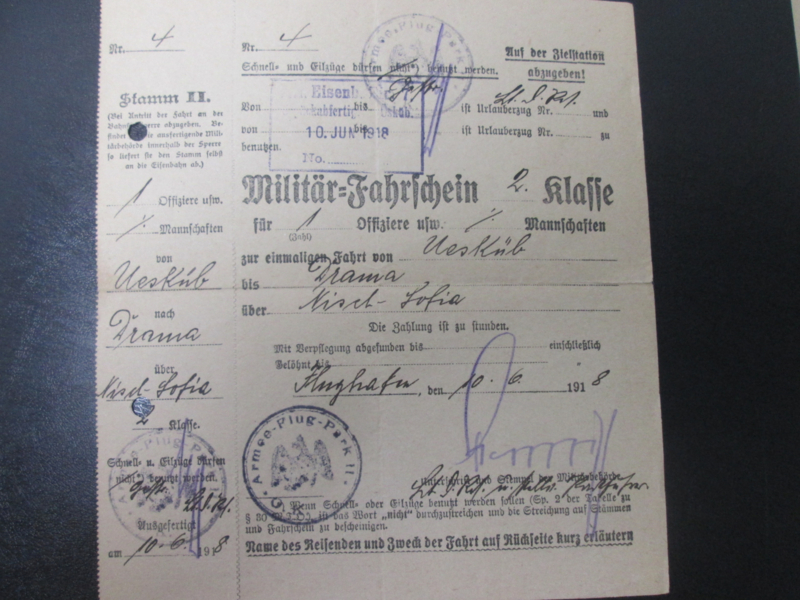 Nr. 4
Stamm II.
(Bei Antritt der Fahrt an der
Bahnsteigsperre abzugeben. Be-
findet die ausfertigende Mili-
tärbehörde innerhalb der Sperre
so liefert sie den Stamm selbst
an die Eisenbahn ab.)
1 Offiziere usw.
Mannschaften
von
Uesküb
nach
Drama
über
Nisch-Sofia
2 Klasse.
Schnell- u. Eilzüge dürfen
nicht*) benutzt werden.
Lt. d. Rs.
Ausgefertigt
am 10.6. 1918
Armee-Flug-P
Nr. 4
Armee-Flug-Park
Auf der Zielstation
abzugeben!
Schnell- und Eilzüge dürfen nicht*) benutzt werden.
Eisenb.
10. JUNI 1918
No.
Von bis ist Urlauberzug Nr. und
von bis ist Urlauberzug Nr. zu
benutzen.
Lt. d. Rs.
Militär-Fahrschein 2. Klasse
für 1 Offiziere usw. Mannschaften
(Zahl)
zur einmaligen Fahrt von Uesküb
bis Drama
über Nisch-Sofia
Die Zahlung ist zu stunden.
Mit Verpflegung abgefunden bis einschließlich
Gelöhnt bis
Flughafen, den 10.6. 1918
Armee-Flug-Park II
Unterschrift und Stempel der Militärbehörde
Lt. d. Rs.
*) Wenn Schnell- oder Eilzüge benutzt werden sollen (Sp. 2 der Tabelle zu
§ 30 ist das Wort „nicht" durchzustreichen und die Streichung auf Stämmen
und Fahrschein zu bescheinigen.
Name des Reisenden und Zweck der Fahrt auf Rückseite kurz erläutern